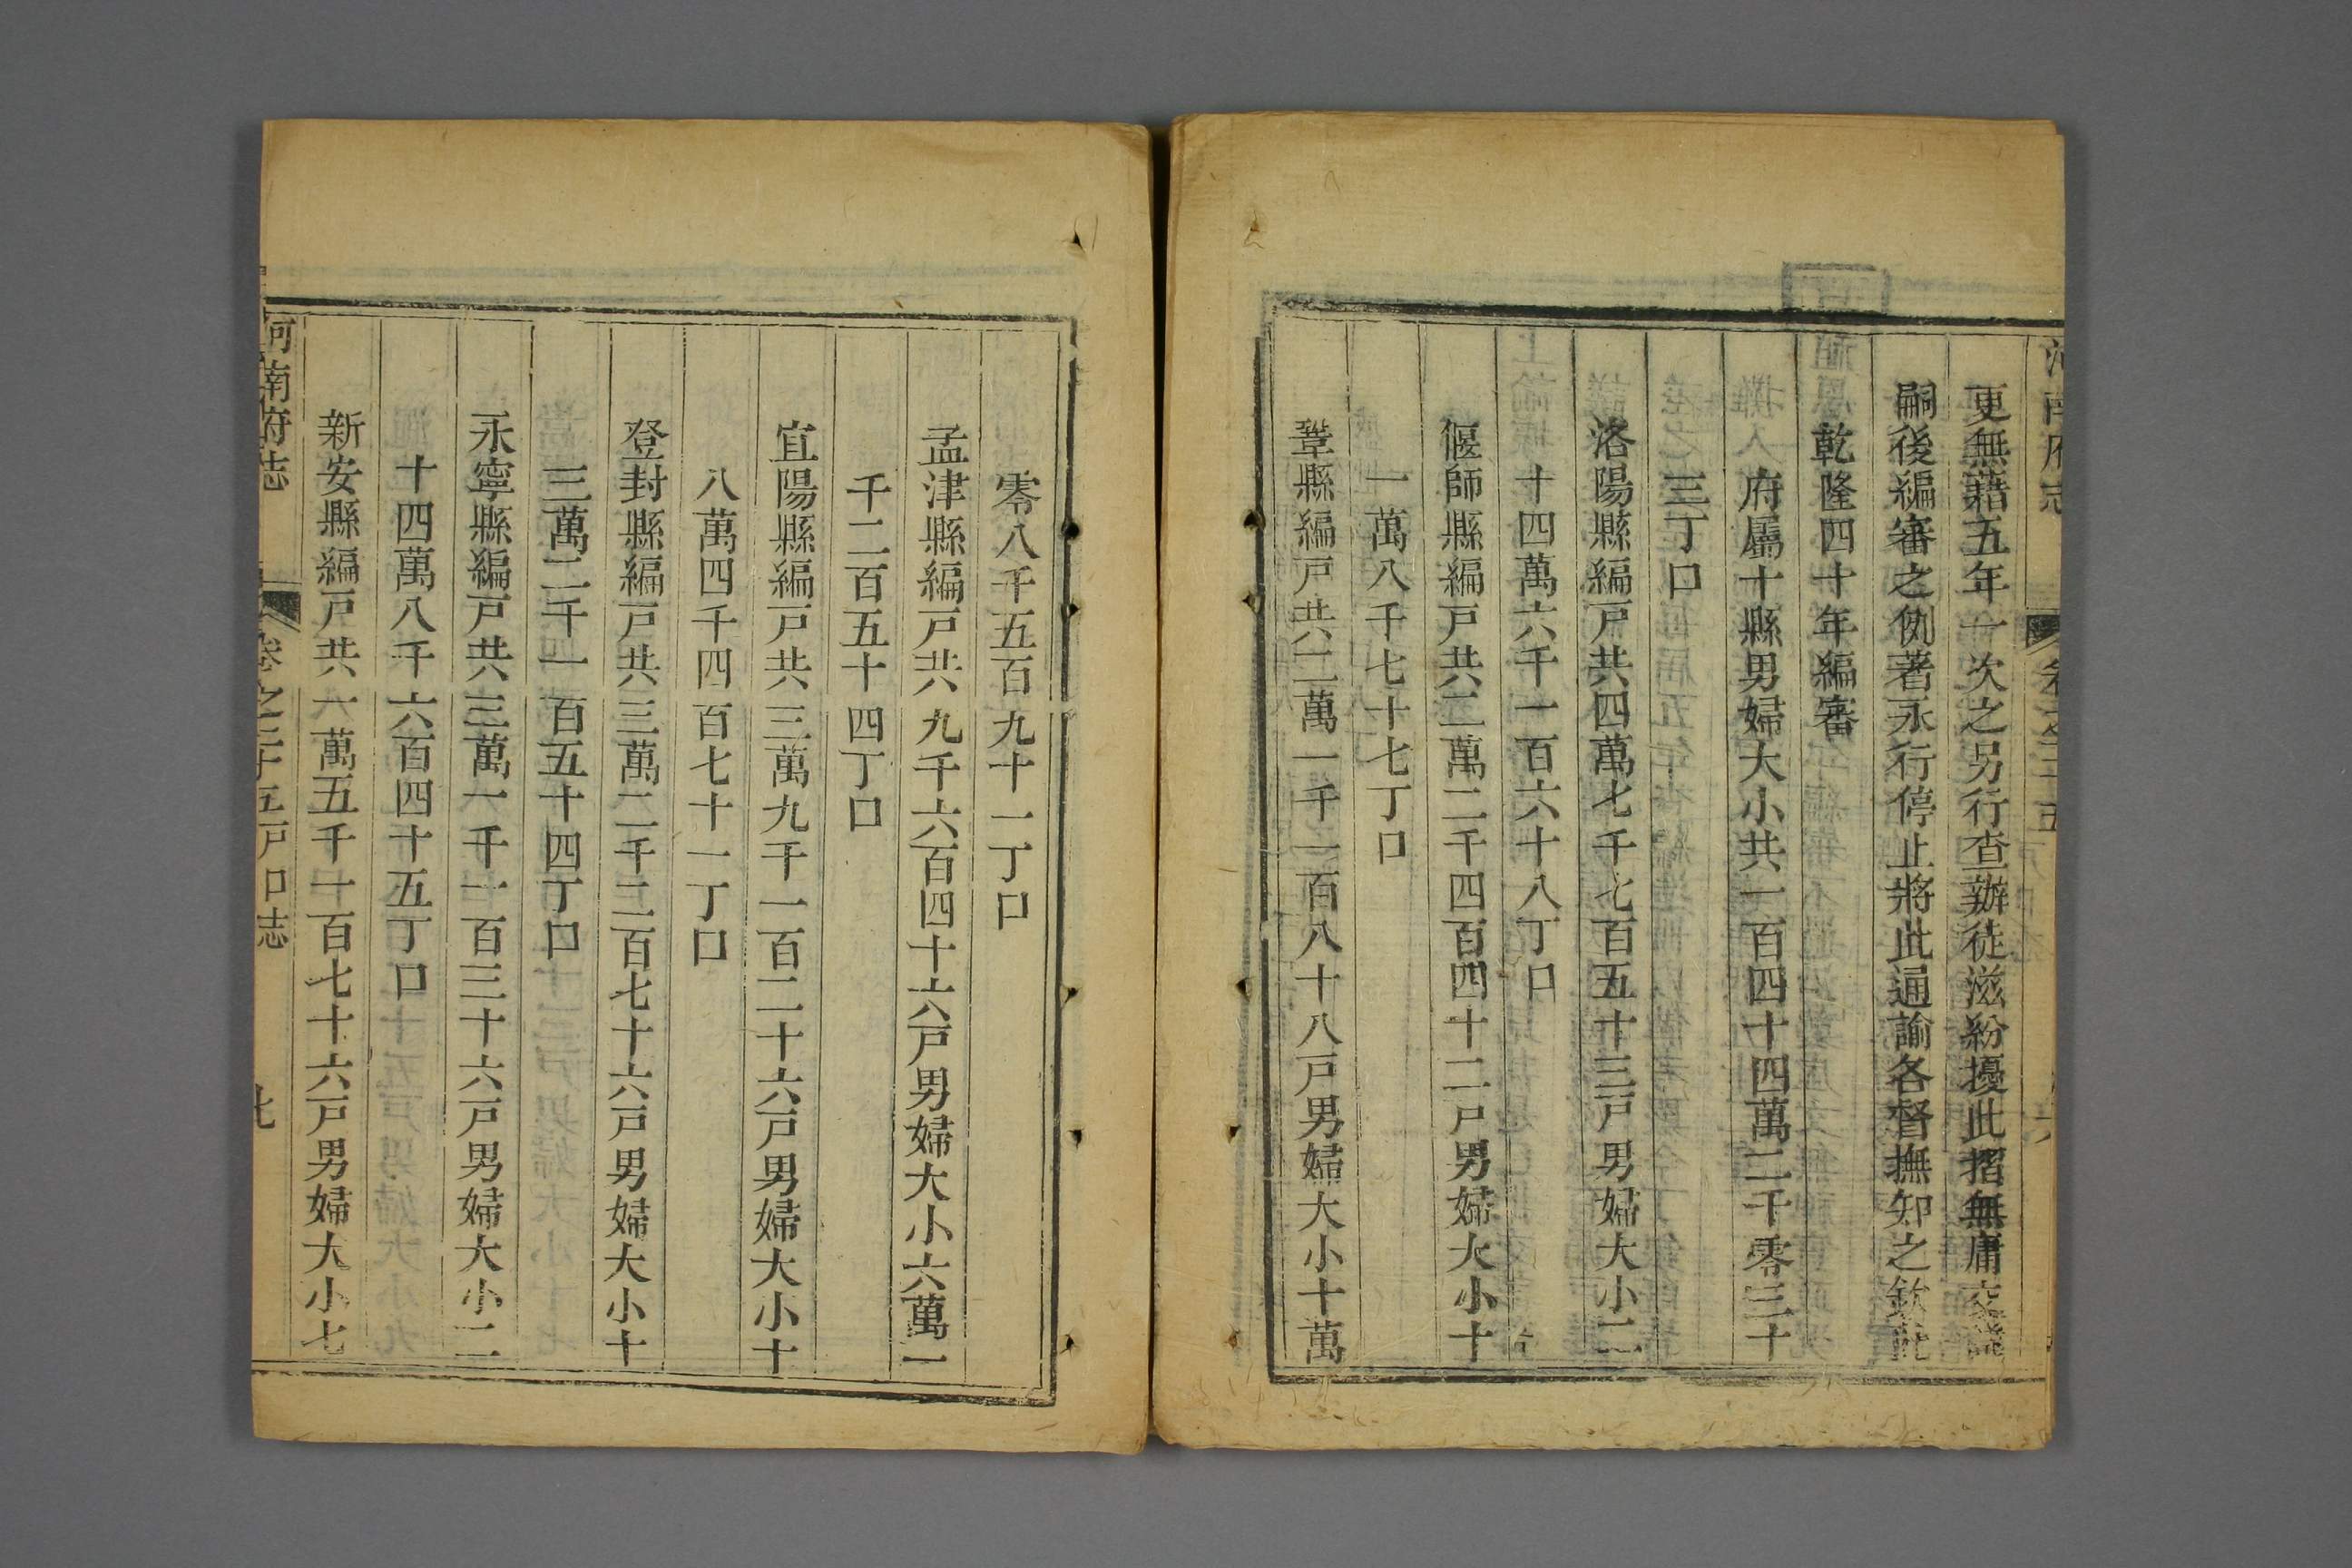 更無藉五年一次之另行查辦徒滋紛擾此摺無庸交議
嗣後編審之例著永行停止將此通諭各督撫知之欽此
乾隆四十年編審
府屬十縣男婦大小共一百四十四萬二千零三十
三丁口
洛陽縣編戸共四萬七千七百五十三戸男婦大小二
十四萬六千一百六十八丁口
偃師縣編戸共二萬二千四百四十二戸男婦大小十
一萬八千七十七丁口
鞏縣編戸共二萬一千一百八十八戸男婦大小十萬
零八千五百九十一丁口
孟津縣編戸共九千六百四十六戸男婦大小六萬一
千二百五十四丁口
宜陽縣編戸共三萬九千一百二十六戸男婦大小十
八萬四千四百七十一丁口
登封縣編戸共三萬二千二百七十六戸男婦大小十
三萬二千一百五十四丁口
永寧縣編戸共三萬一千一百三十六戸男婦大小二
十四萬八千六百四十五丁口
新安縣編戸共一萬五千一百七十六戸男婦大小七
河南府志 卷之二十五戸口志 七